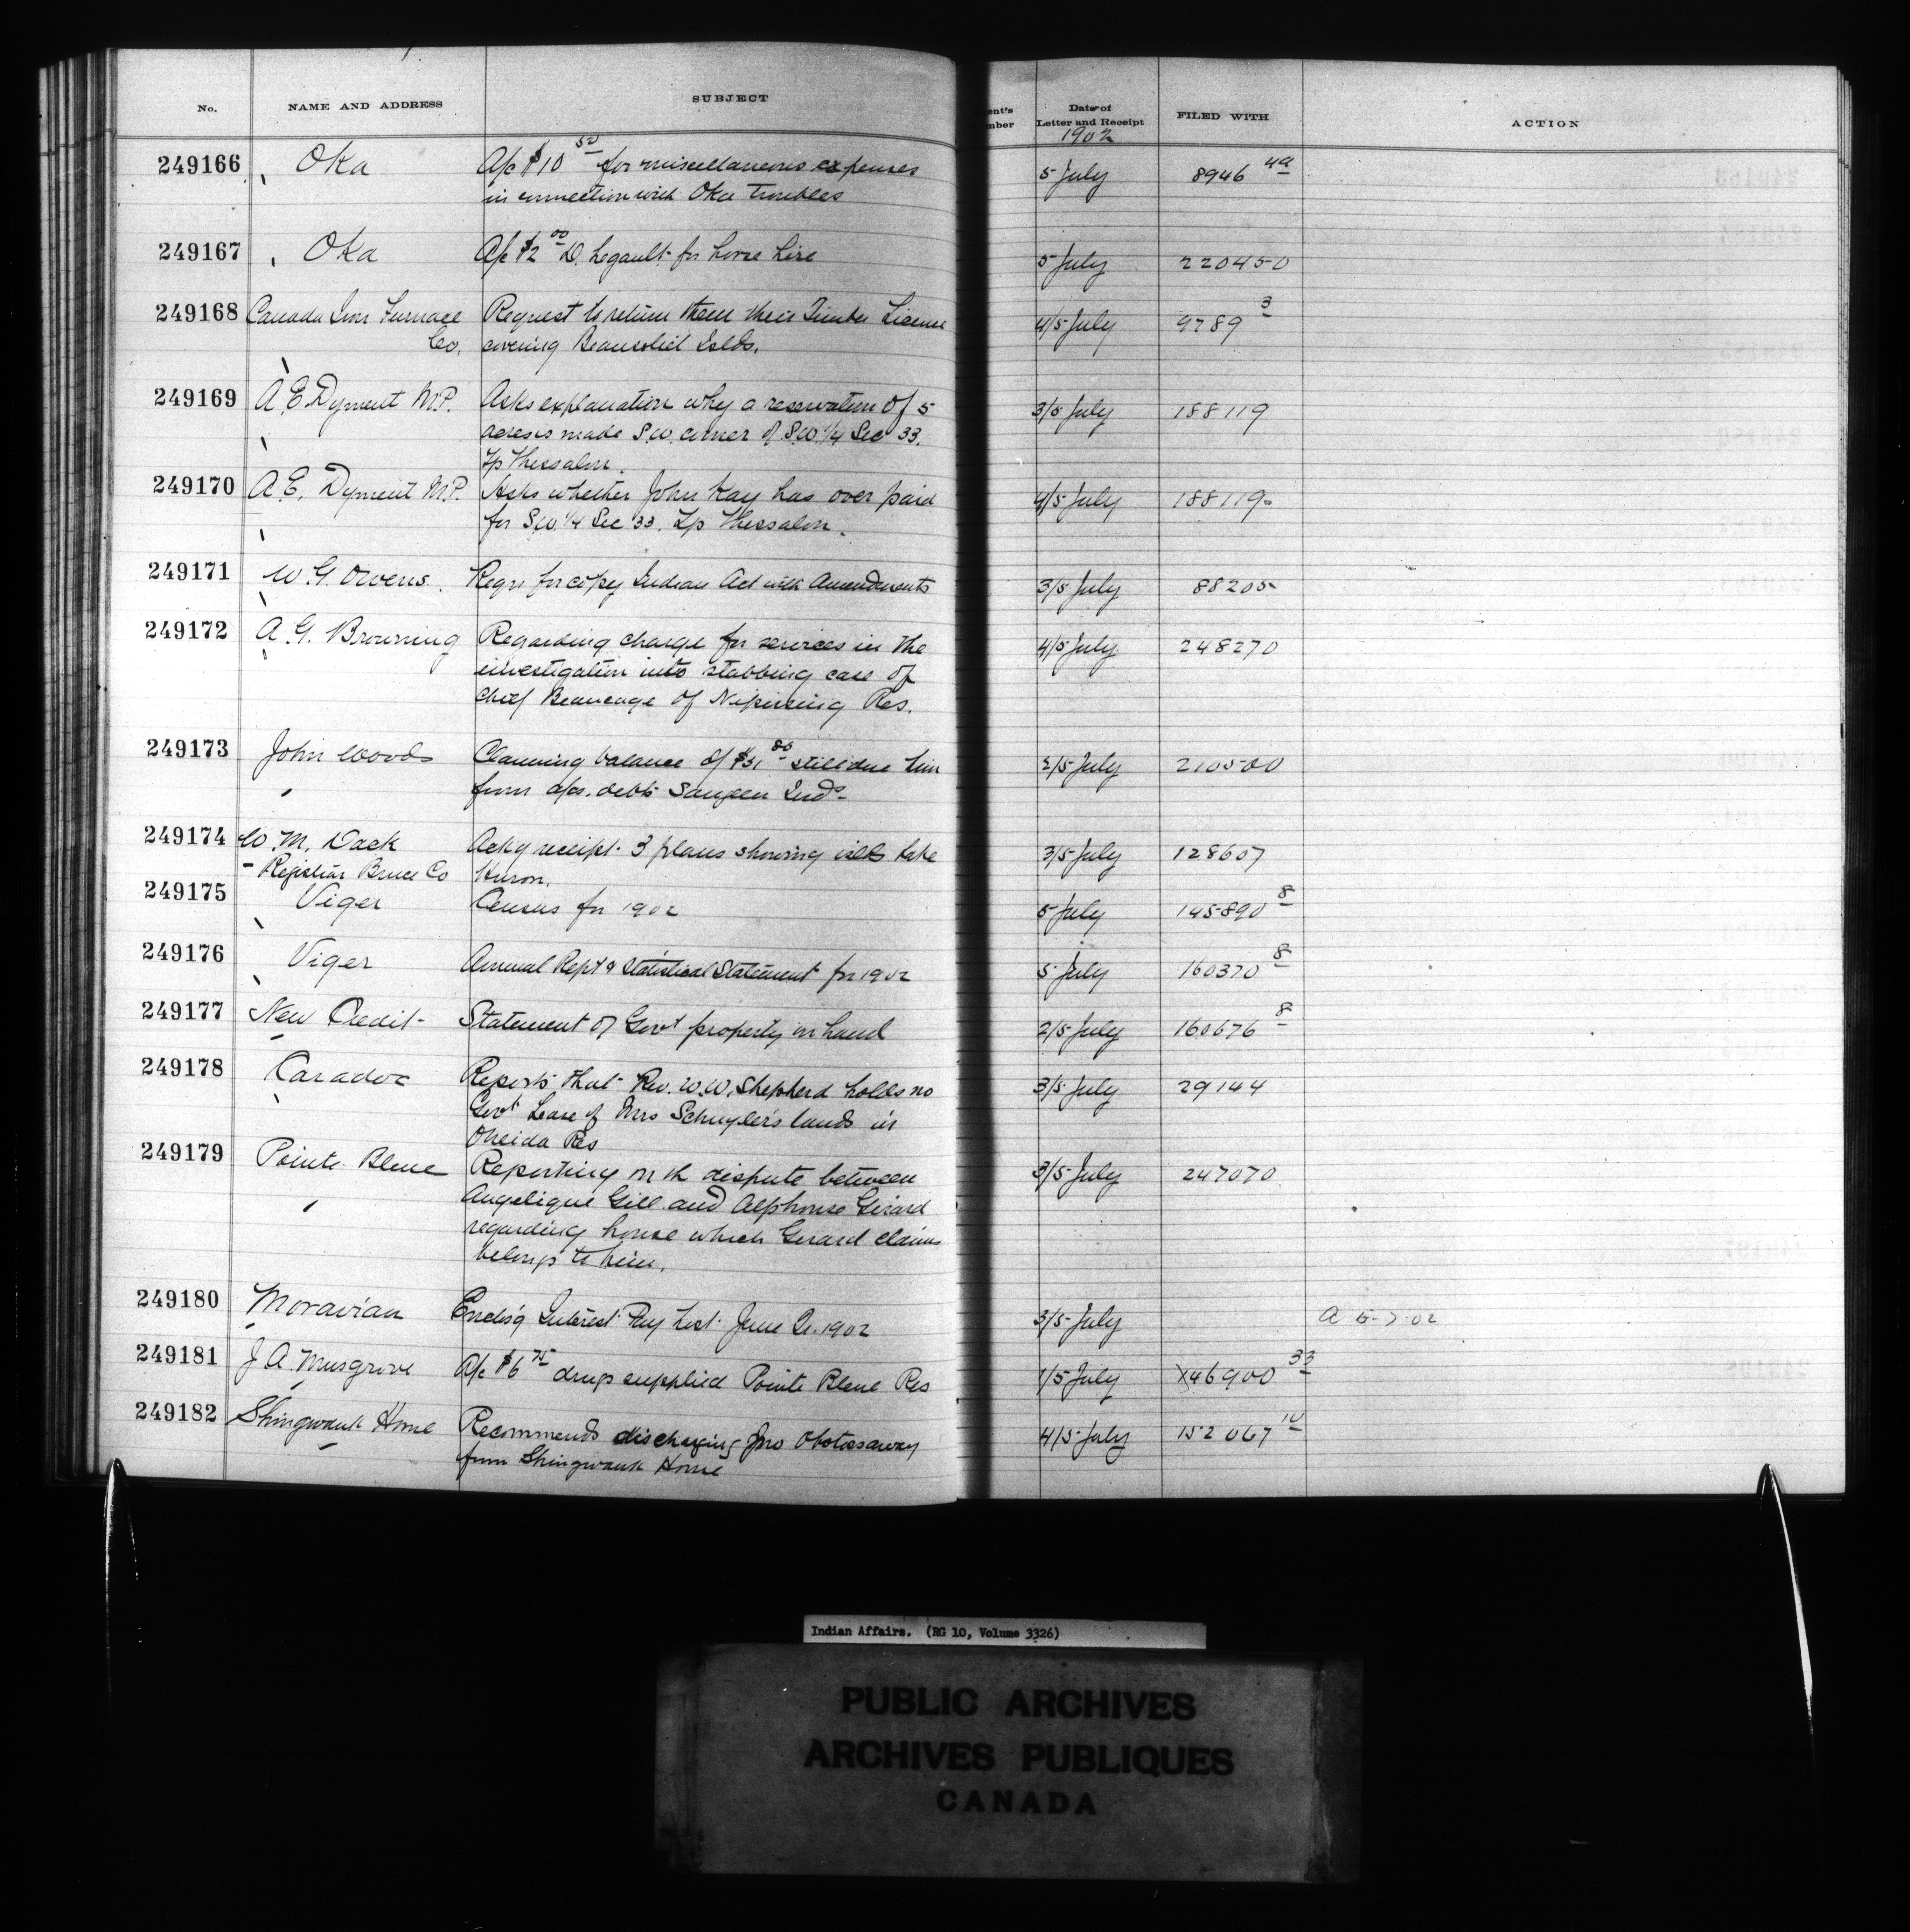 No. NAME AND ADDRESS SUBJECT ent's mber Date of Letter and Receipt FILED WITH ACTION
1902
249166 Oka A/c $10 50 for miscellaneous expenses 5 July 8946 4a
in connection with Oka troubles
249167 Oka A/c $2 00 D. Legault for horse hire 5 July 220450
249168 Canada Iron Furnace Request to return them their Timber License 4/5 July 9789 3
Co. covering Beausoleil Islds.
249169 A. E. Dyment M.P. Asks explanation why a reservation of 5 3/5 July 188119
acres is made S.W. corner of S.W. 1/4 Sec 33.
Tp Thessalon.
249170 A. E. Dyment M.P. Asks whether John Kay has over paid 4/5 July 188119
for S.W. 1/4 Sec 33. Tp Thessalon.
249171 W. G. Owens. Reqn for copy Indian Act with Amendments 3/5 July 88205
249172 A. G. Browning Regarding charge for services in the 4/5 July 248270
investigation into stabbing case of
Chief Beaucage of Nipissing Res.
249173 John Woods Claiming balance of $31 80 still due him 2/5 July 210500
from a/cs. debts Saugeen Inds
249174 W. M. Dack Ackg receipt 3 plans showing islds Lake 3/5 July 128607
Registrar Bruce Co Huron.
249175 Viger Census for 1902 5 July 145890 8
249176 Viger Annual Rept & Statistical Statement for 1902 5 July 160370 8
249177 New Credit Statement of Govt property in hand 2/5 July 160676 8
249178 Caradoc Reports that Rev. W. W. Shepherd holds no 3/5 July 29144
Govt Lease of Mrs Schuyler's lands in
Oneida Res
249179 Pointe Bleue Reporting on the dispute between 3/5 July 247070
Angelique Gill and Alphonse Girard
regarding house which Girard claims
belongs to him.
249180 Moravian Encls'g Interest Pay List June 1902 3/5 July A 5-7-02
249181 J. A. Musgrove A/c $6 75 drugs supplied Pointe Bleue Res 1/5 July 146900 33
249182 Shingwauk Home Recommends discharging Jno 4/5 July 152067 10
from Shingwauk Home
Indian Affairs. (RG 10, Volume 3326)
PUBLIC ARCHIVES
ARCHIVES PUBLIQUES
CANADA